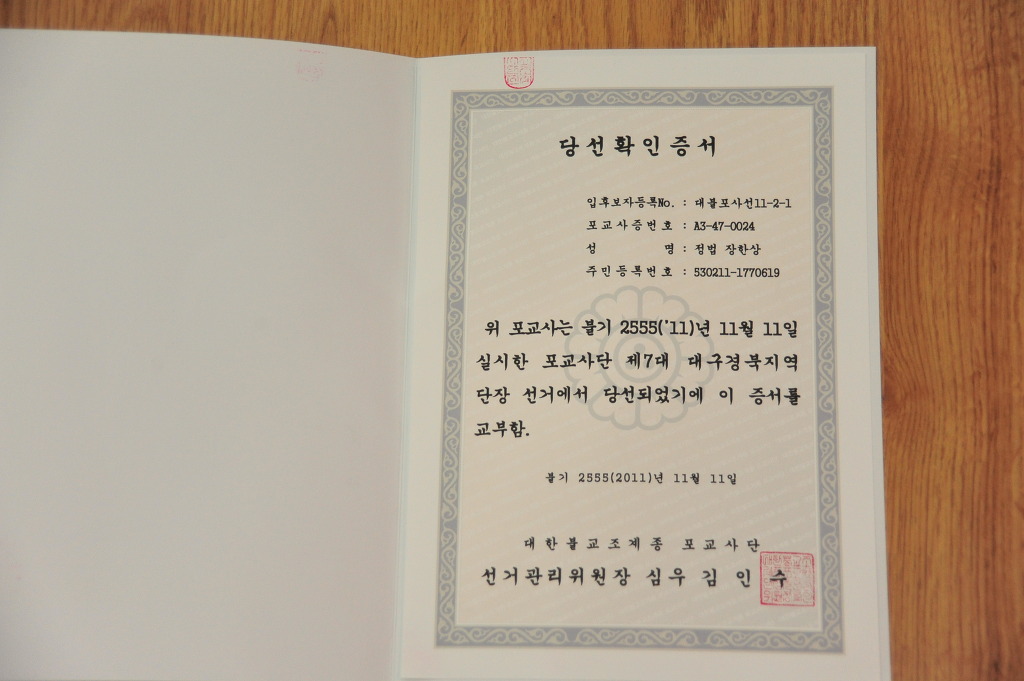 당선확인증서
입후보자등록No. : 대불포사선11-2-1
포교사증번호 : A3-47-0024
성 명 : 정법 장한상
주민등록번호 : 530211-1770619
위 포교사는 불기 2555('11)년 11월 11일
실시한 포교사단 제7대 대구경북지역
단장 선거에서 당선되었기에 이 증서를
교부함.
불기 2555(2011)년 11월 11일
대한불교조계종 포교사단
선거관리위원장 심우 김인수